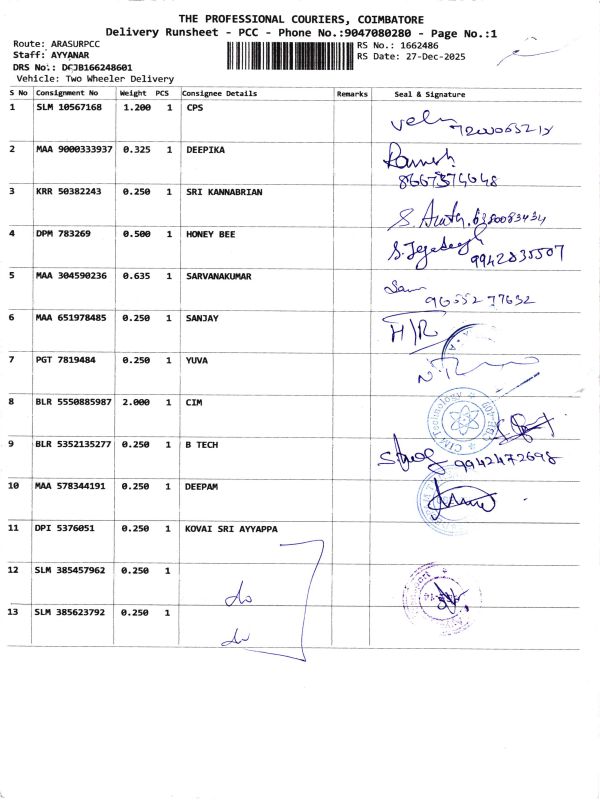 THE PROFESSIONAL COURIERS, COIMBATORE
Delivery Runsheet - PCC - Phone No.:9047080280 - Page No.:1
Route: ARASURPCC
RS No.: 1662486
Staff: AYYANAR
RS Date: 27-Dec-2025
DRS No.: DEJB166248601
Vehicle: Two Wheeler Delivery
S No Consignment No Weight PCS Consignee Details Remarks Seal & Signature
1 SLM 10567168 1.200 1 CPS
2 MAA 9000333937 0.325 1 DEEPIKA Ramesh
8667374648
3 KRR 50382243 0.250 1 SRI KANNABRIAN 6380083434
4 DPM 783269 0.500 1 HONEY BEE 9942835507
5 MAA 304590236 0.635 1 SARVANAKUMAR 9655277632
6 MAA 651978485 0.250 1 SANJAY H/R
7 PGT 7819484 0.250 1 YUVA
8 BLR 5550885987 2.000 1 CIM
9 BLR 5352135277 0.250 1 B TECH 9942472698
10 MAA 578344191 0.250 1 DEEPAM
11 DPI 5376051 0.250 1 KOVAI SRI AYYAPPA
12 SLM 385457962 0.250 1 do
13 SLM 385623792 0.250 1 do